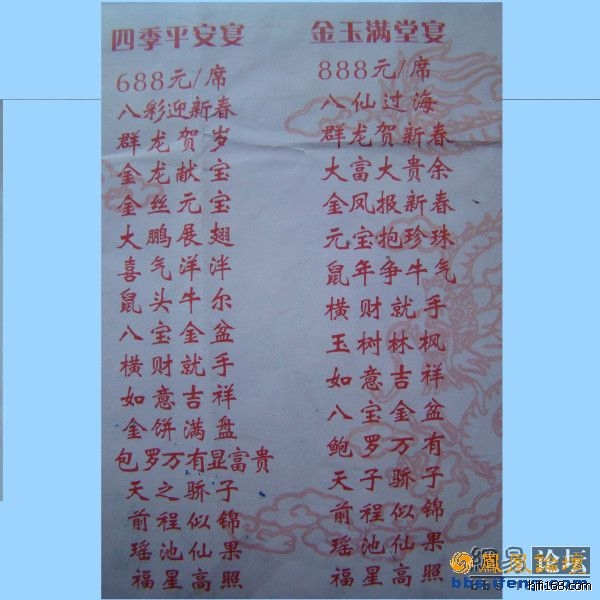 四季平安宴
688元/席
八彩迎新春
群龙贺岁
金龙献宝
金丝元宝
大鹏展翅
喜气洋洋
鼠头牛尔
八宝金盆
横财就手
如意吉祥
金饼满盘
包罗万有显富贵
天之骄子
前程似锦
瑶池仙果
福星高照
金玉满堂宴
888元/席
八仙过海
群龙贺新春
大富大贵余
金凤报新春
元宝抱珍珠
鼠年争牛气
横财就手
玉树林枫
如意吉祥
八宝金盆
鲍罗万有
天子骄子
前程似锦
瑶池仙果
福星高照
凤凰论坛